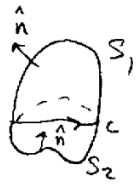 n̂
S₁
n̂
C
S₂